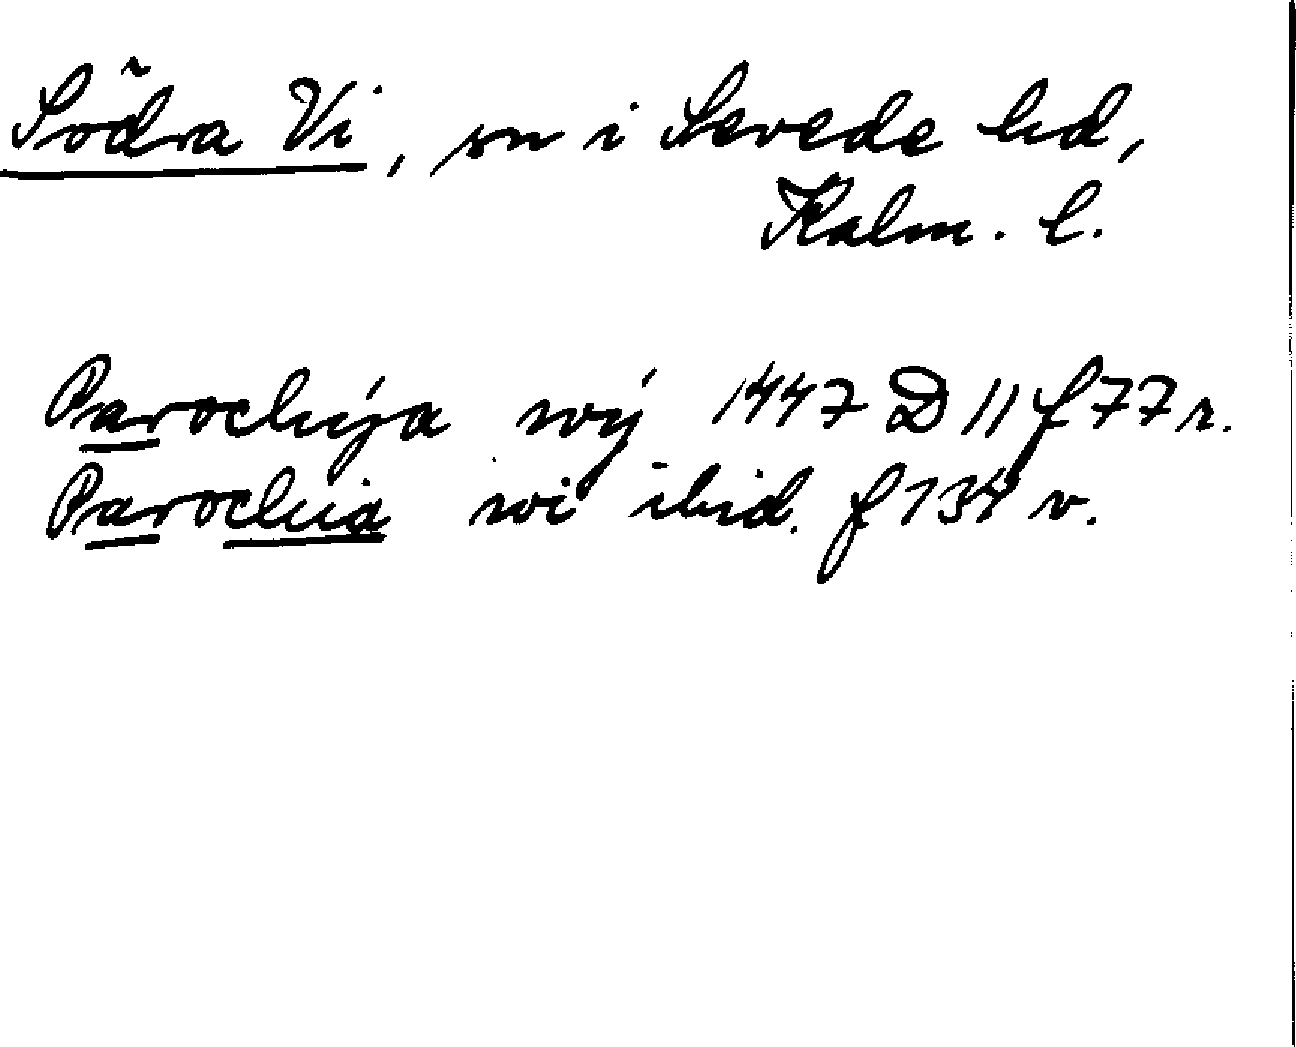 Södra Vi, sn i Sevede hd,
Kalm. l.
Parochýa wý 1447 D 11 f 77 r.
Parochia wi ibid. f 134 v.